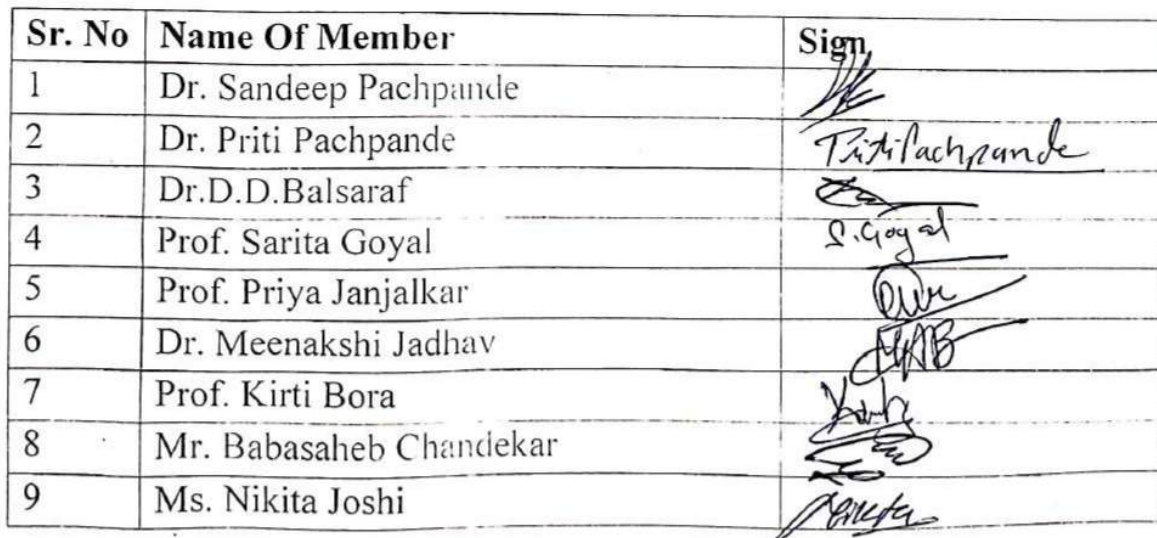 Sr. No Name Of Member Sign
1 Dr. Sandeep Pachpande
2 Dr. Priti Pachpande PritiPachpande
3 Dr.D.D.Balsaraf
4 Prof. Sarita Goyal S.Goyal
5 Prof. Priya Janjalkar
6 Dr. Meenakshi Jadhav
7 Prof. Kirti Bora
8 Mr. Babasaheb Chandekar
9 Ms. Nikita Joshi